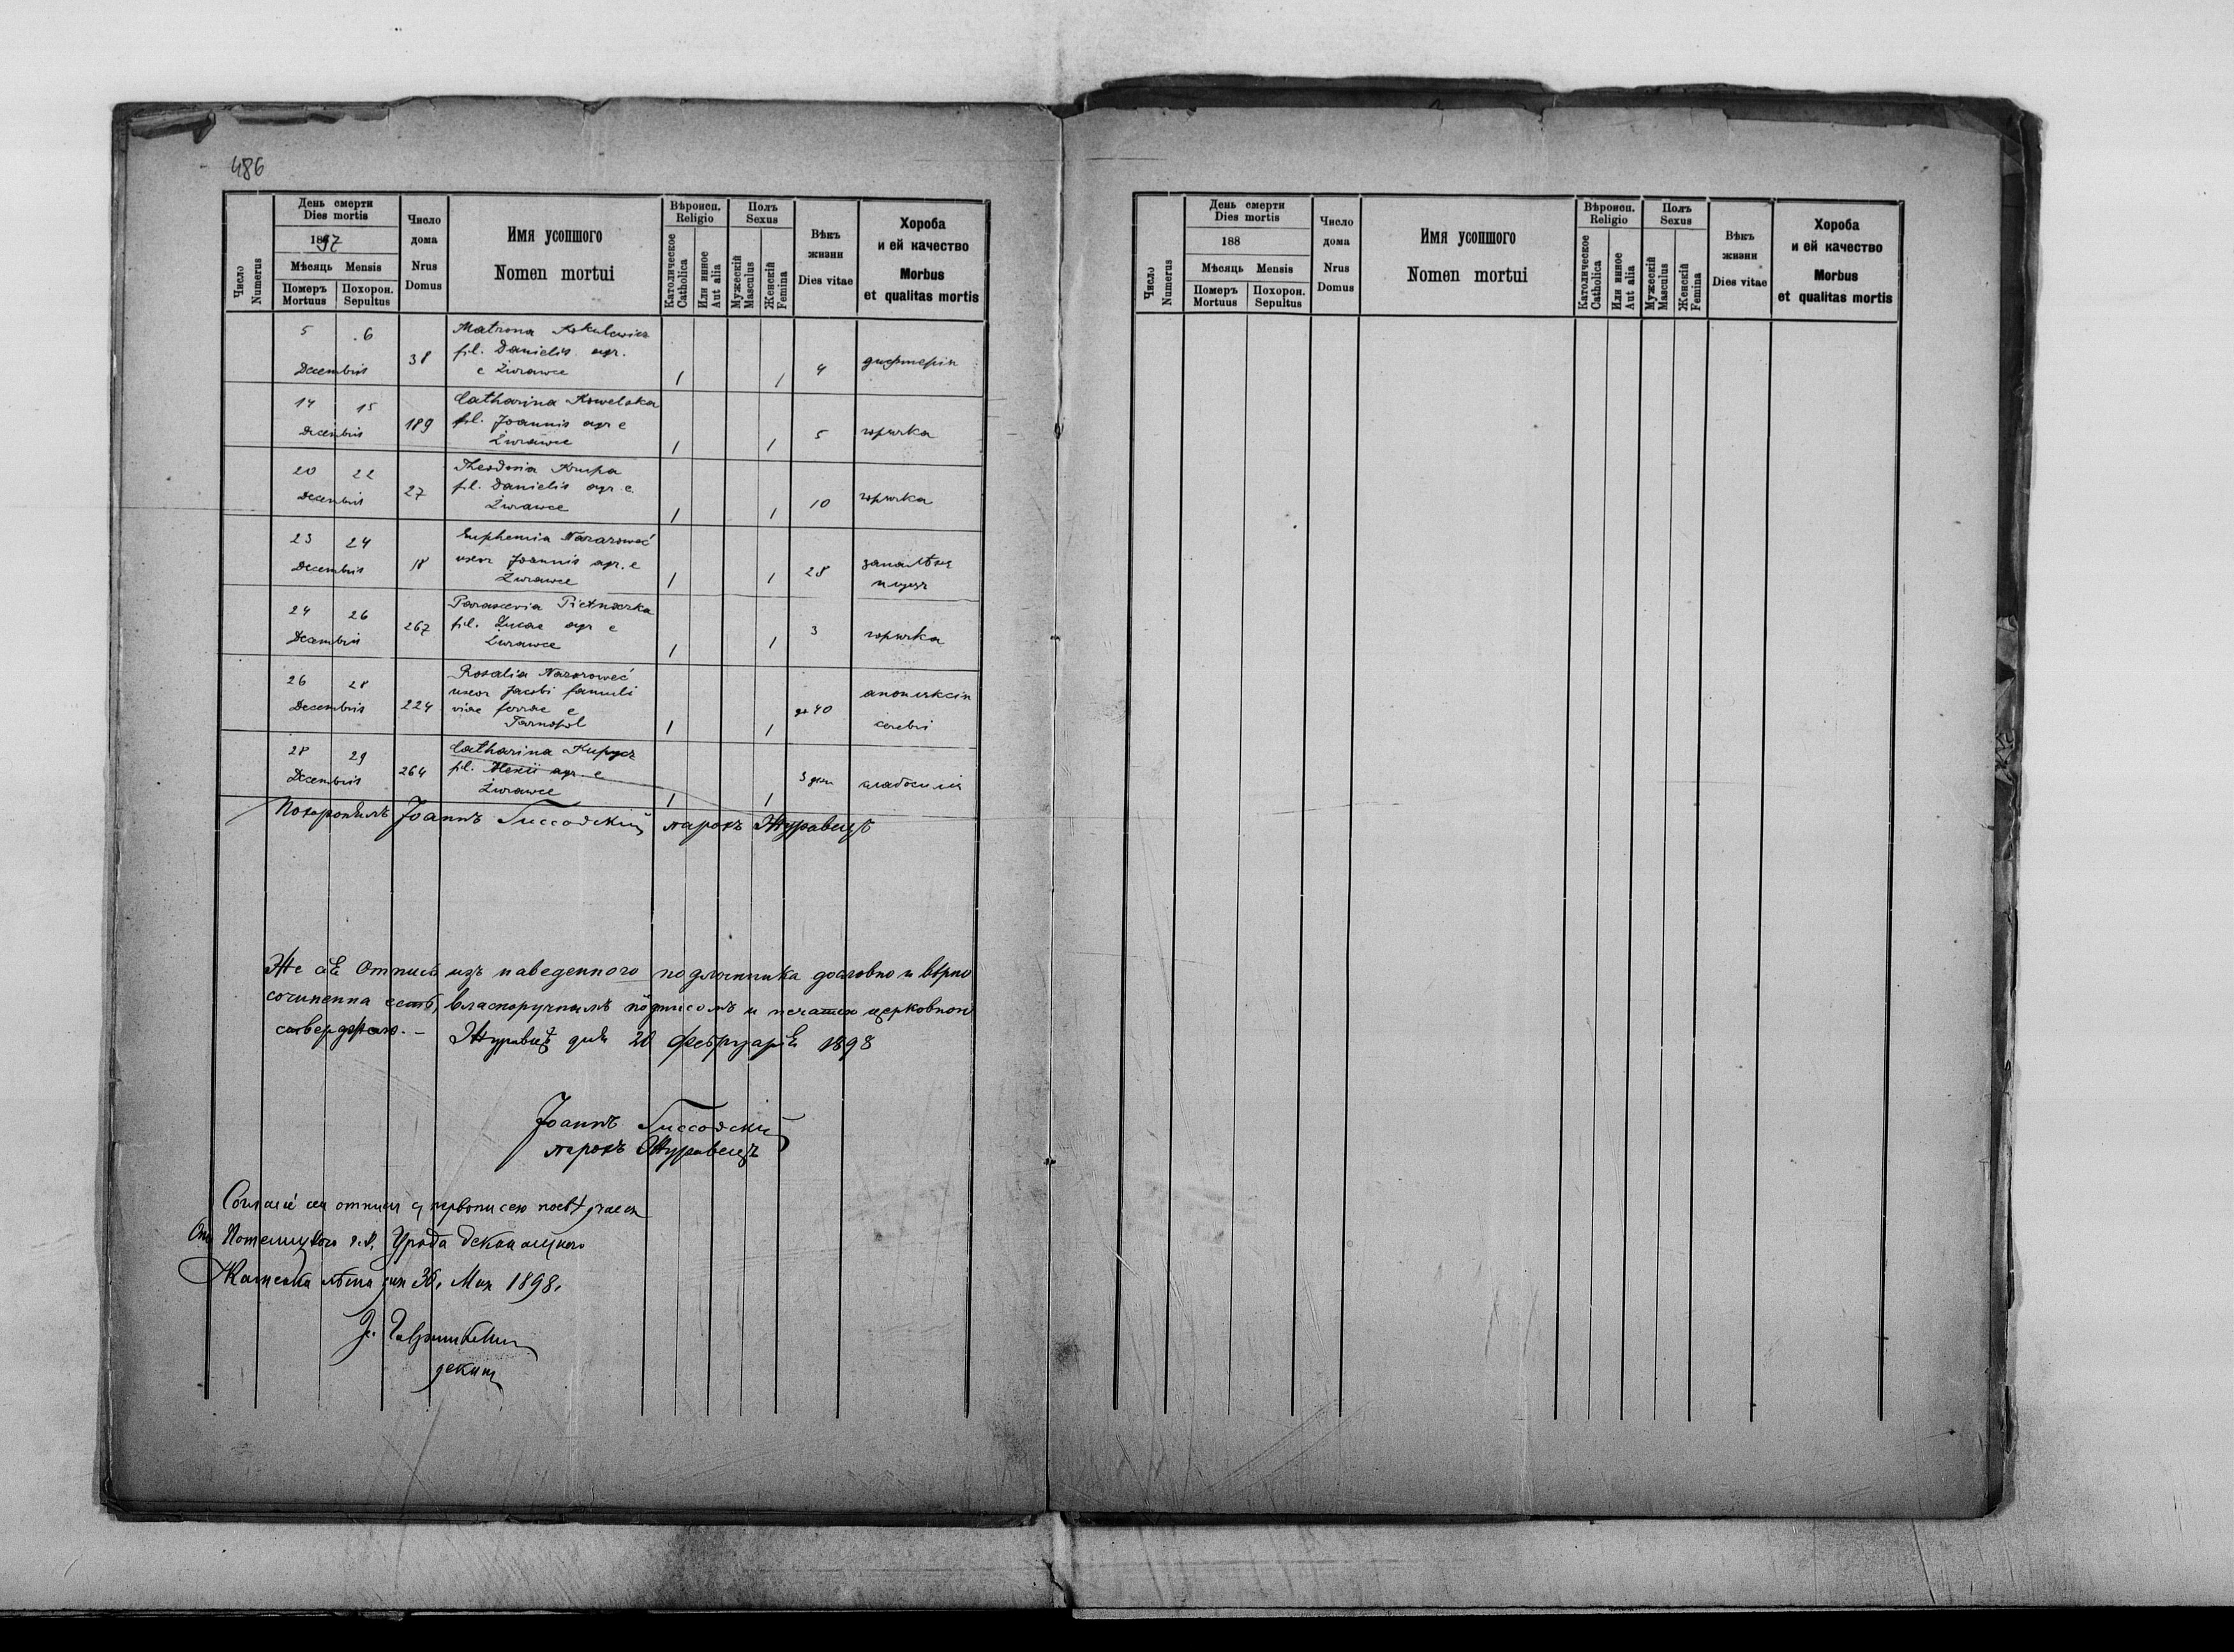 486
День смерти
Dies mortis
1897
Мѣсяць Mensis
Померъ Похорон.
Mortuus Sepultus
Число
Numerus
Число
дома
Nrus
Domus
Имя усопшого
Nomen mortui
Вѣроисп.
Religio
Католическое
Catholica
Или инное
Aut alia
Полъ
Sexus
Мужескій
Masculus
Женскій
Femina
Вѣкъ
жизни
Dies vitae
Хороба
и ей качество
Morbus
et qualitas mortis
5 6
Decembris
38
Matrona
fil. Danielis agr.
e Żurawce
1 1
4
дифтерія
14 15
Decembris
189
Catharina Kowelska
fil. Joannis agr e
Żurawce
1 1
5
горячка
20 22
Decembris
27
Theodosia Krupa
fil. Danielis agr. e
Żurawce
1 1
10
горячка
23 24
Decembris
18
Euphemia Nazaroweć
uxor Joannis agr. e
Żurawce
1 1
28
24 26
Decembris
267
Parascevia
fil. Lucae agr e
Żurawce
1 1
3
горячка
26 28
Decembris
224
Rosalia Nazaroweć
uxor Jacobi famuli
viae ferrae e
Tarnopol
1 1
40
апоплексія
cerebri
28 29
Decembris
264
Catharina
fil. Alexii agr. e
Żurawce
1 1
3 дни
Похоронилъ Іоаннъ парохъ
Же сей отписъ изъ наведенного подлинника дословно и вѣрно
сочиненна есть, власноручнымъ подписомъ и печатею церковною
ствердждаю. –
дня 20 Февруарія 1898
Іоаннъ
парохъ
отписи съ первописею
От Потелицкого Уряда деканального
дня 30. Мая 1898.
декан
День смерти
Dies mortis
188
Мѣсяць Mensis
Померъ Похорон.
Mortuus Sepultus
Число
Numerus
Число
дома
Nrus
Domus
Имя усопшого
Nomen mortui
Вѣроисп.
Religio
Католическое
Catholica
Или инное
Aut alia
Полъ
Sexus
Мужескій
Masculus
Женскій
Femina
Вѣкъ
жизни
Dies vitae
Хороба
и ей качество
Morbus
et qualitas mortis